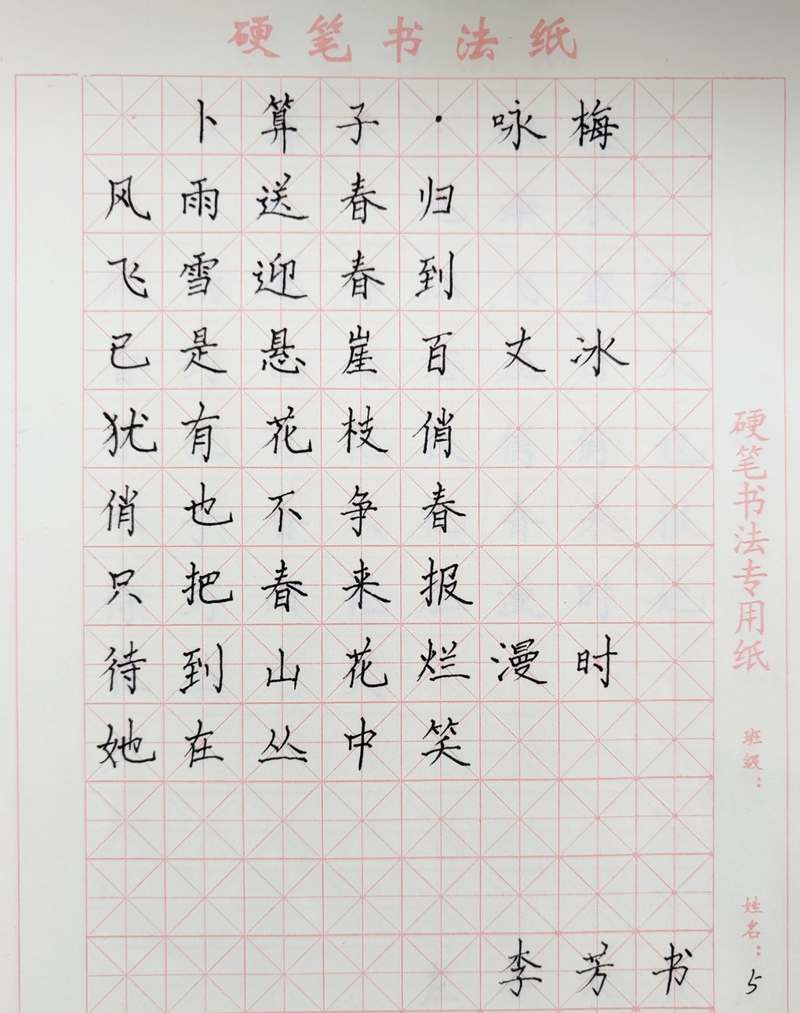 硬笔书法纸
卜算子·咏梅
风雨送春归
飞雪迎春到
已是悬崖百丈冰
犹有花枝俏
俏也不争春
只把春来报
待到山花烂漫时
她在丛中笑
李芳书
硬笔书法专用纸
班级：
姓名：
5